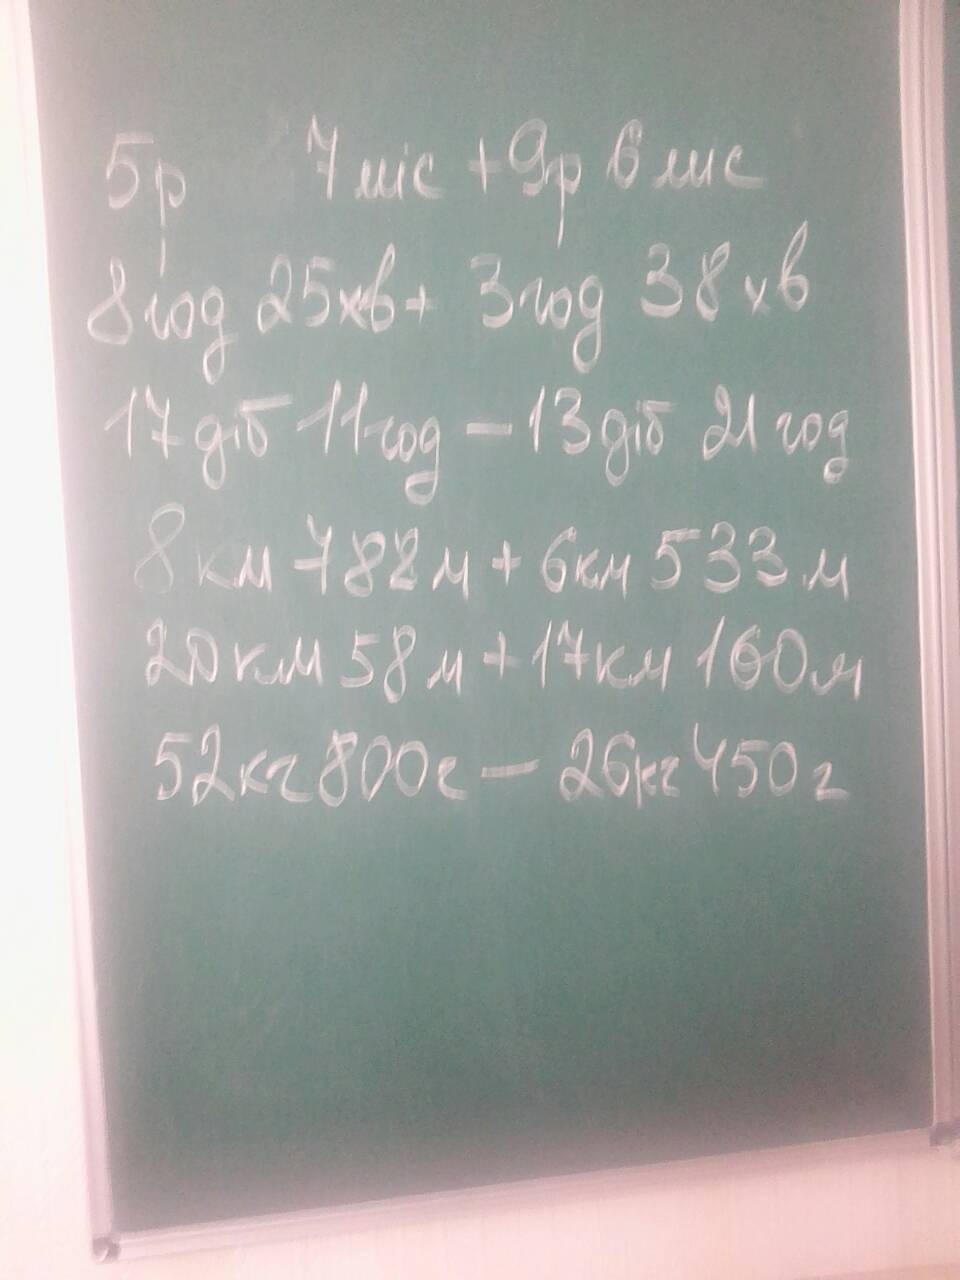 5р 7міс + 9р 6міс
8год 25хв + 3год 38хв
17діб 11год - 13діб 21год
8км 788м + 6км 533м
20км 58м + 17км 160м
52кг 800г - 26кг 450г